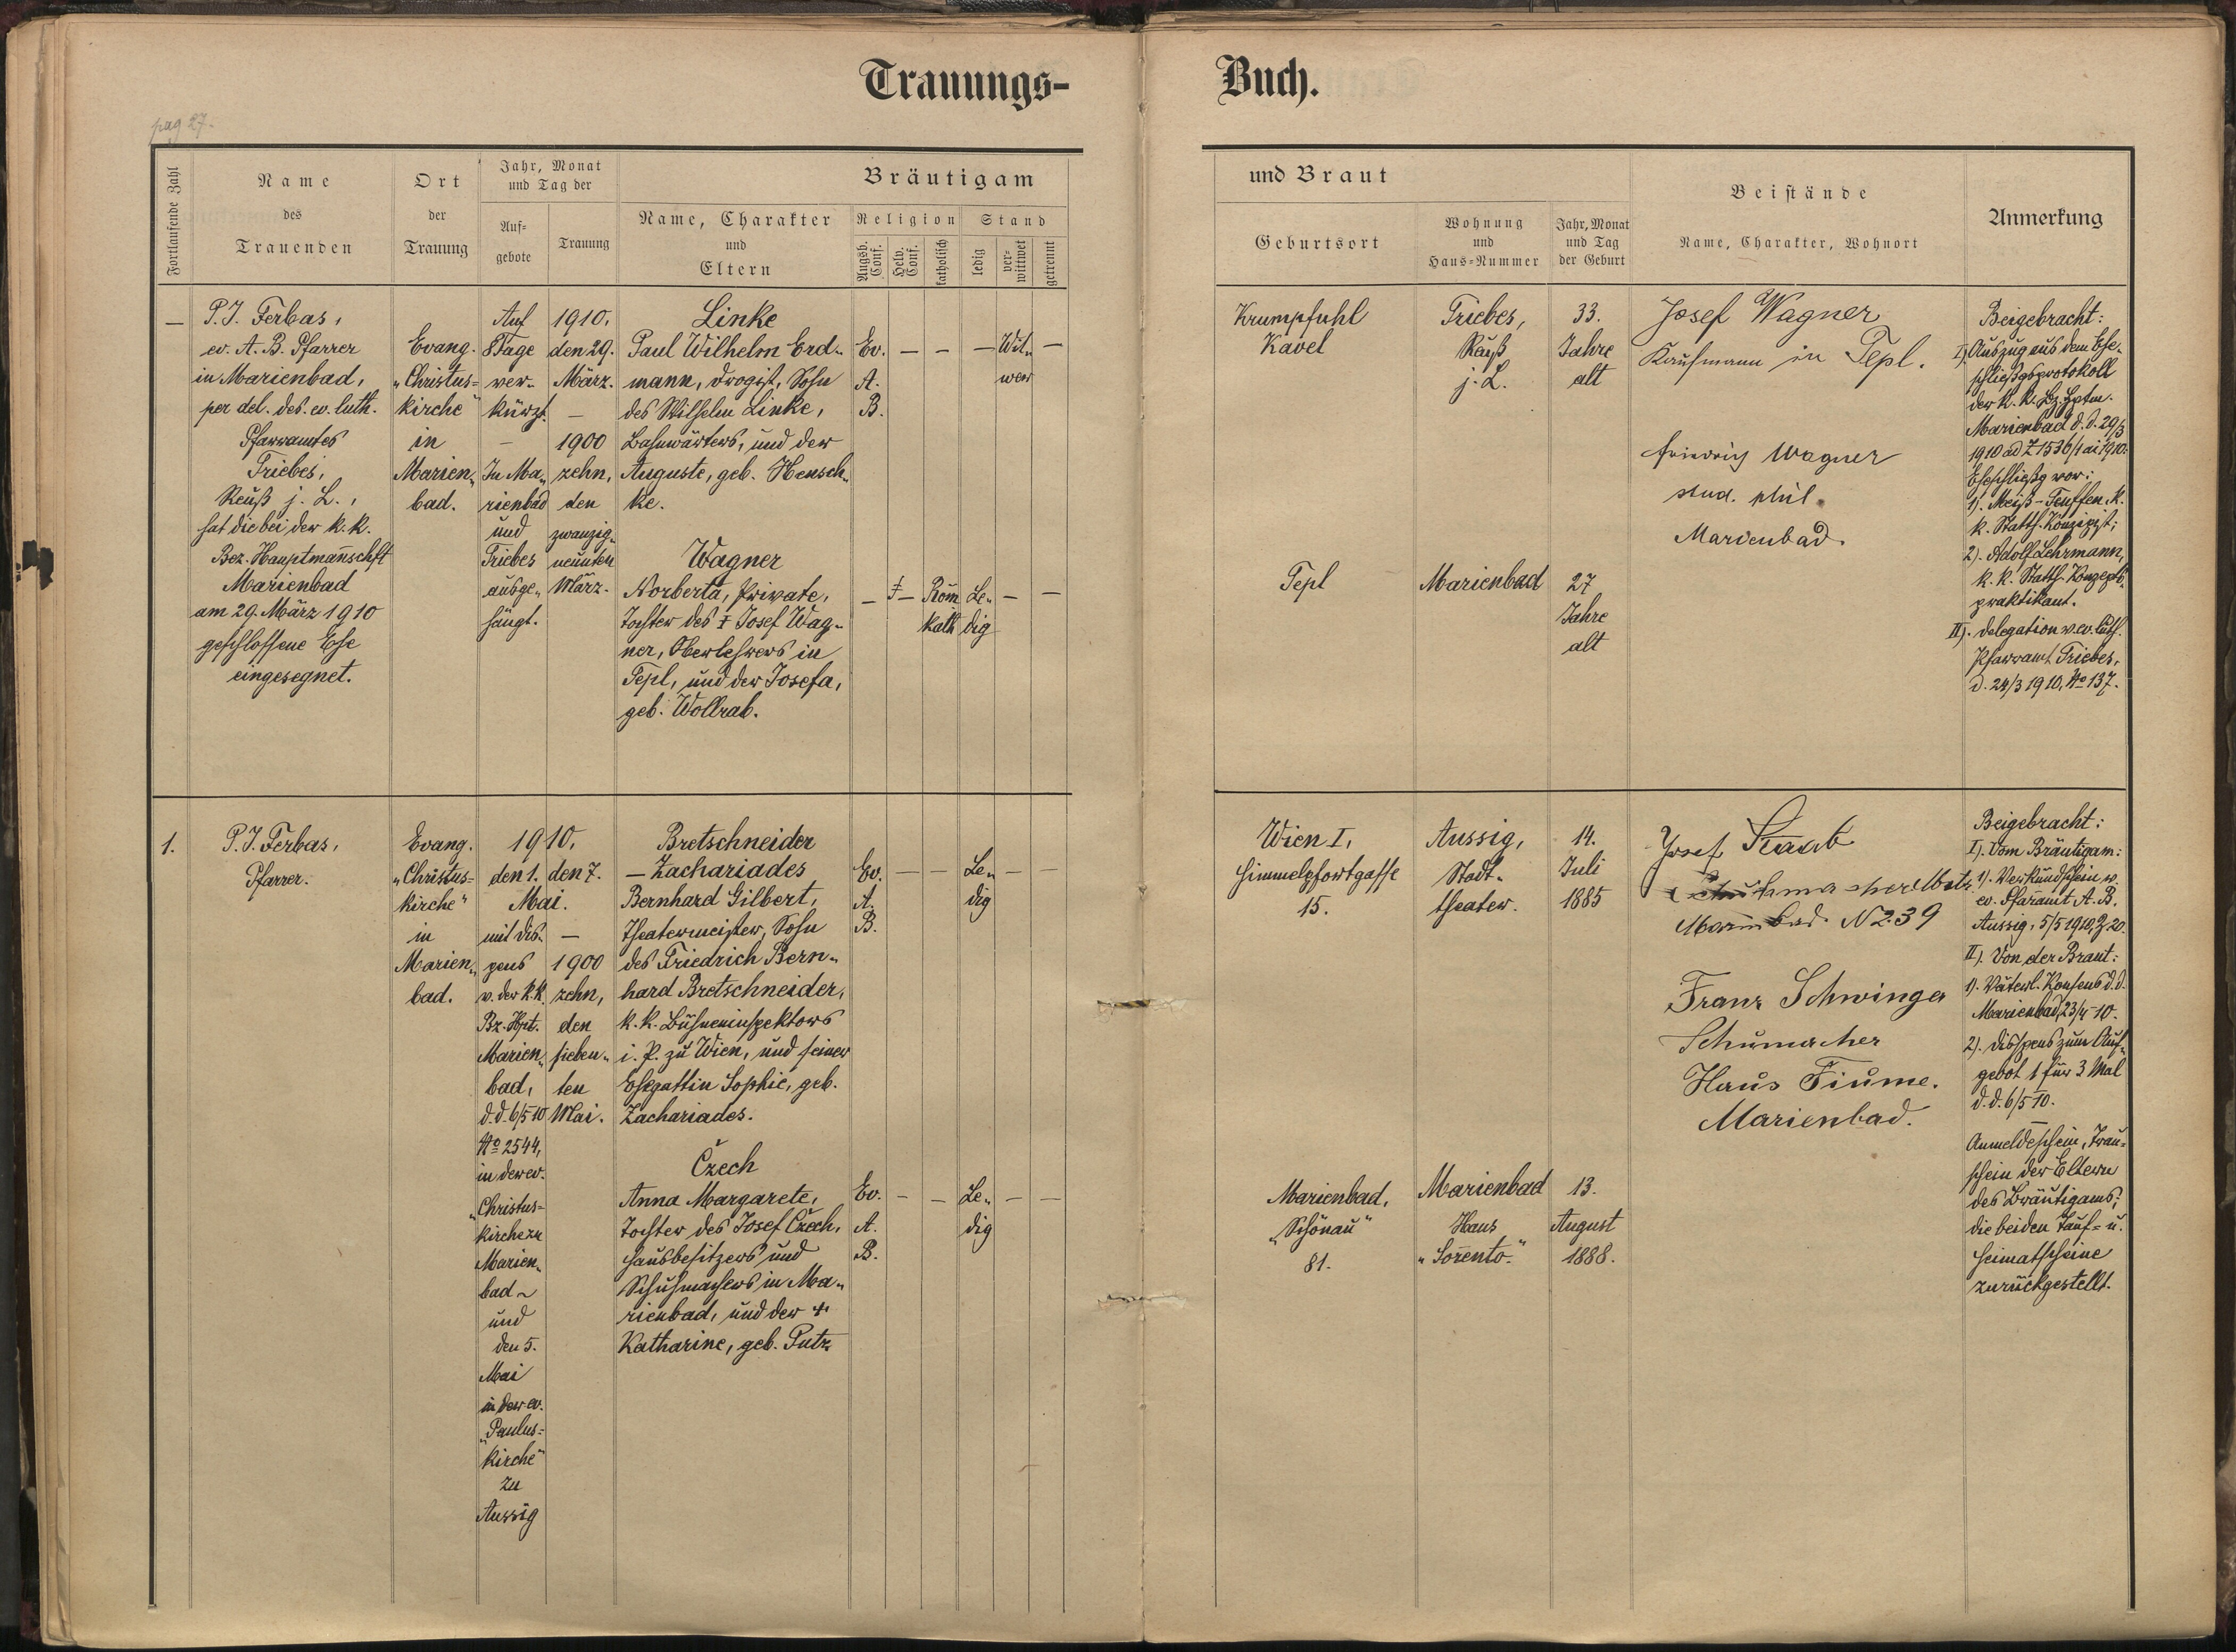 Trauungs-
Buch.
pag 27.
Fortlaufende Zahl
Name
des
Trauenden
Ort
der
Trauung
Jahr, Monat
und Tag der
Auf-
gebote
Trauung
Bräutigam
Name, Charakter
und
Eltern
Religion
Augsb. Conf.
Helv. Conf.
katholisch
Stand
ledig
ver-
wittwet
getrennt
und Braut
Geburtsort
Wohnung
und
Haus-Nummer
Jahr, Monat
und Tag
der Geburt
Beistände
Name, Charakter, Wohnort
Anmerkung
—
P. J. Ferbas,
ev. A. B. Pfarrer
in Marienbad,
per del. des. ev. luth.
Pfarramtes
Triebes,
Reuß j. L.,
hat die bei der k. k.
Bez. Hauptmañschft
Marienbad
am 29. März 1910
geschlossene Ehe
eingesegnet.
Evang.
"Christus=
kirche"
in
Marien„
bad.
Auf
8 Tage
ver„
kürzt.
—
In Ma„
rienbad
und
Triebes
ausge„
hängt.
1910.
den 29.
März.
—
1900
zehn,
den
zwanzig„
neunten
März.
Linke
Paul Wilhelm Erd„
mann, Drogist, Sohn
des Wilhelm Linke,
Bahnwärters, und der
Auguste, geb. Hensch„
ke.
Ev. — — — Wit„ —
A. wer
B.
Wagner
Norberta, Private,
Tochter des ‡ Josef Wag„
ner, Oberlehrers in
Tepl, und der Josefa,
geb. Wollrab.
— ‡— Röm Le„ — —
kath dig
Krumpfuhl
Kavel
Triebes,
Reuß
j. L.
33.
Jahre
alt
Tepl
Marienbad
27
Jahre
alt
Josef Wagner
Kaufmann in Tepl.
Friedrich Wagner
stud. phil.
Marienbad.
Beigebracht:
I). Auszug aus dem Ehe„
schließgsprotokoll
der k. k. Bz. Hptm.
Marienbad d. d. 29/3
1910 ad Z 1536/1 ai 1910.
Eheschließg vor:
1). Meiß-Teuffen, k.
k. Statth. Konzipist;
2). Adolf Lehrmann,
k. k. Statth. Konzepts„
praktikant.
II). Delegation v. ev. luth.
Pfarramt Triebes,
d. 24/3 1910, No 137.
1.
P. J. Ferbas,
Pfarrer.
Evang.
"Christus=
kirche"
in
Marien„
bad.
1910,
den 1. den 7.
Mai.
mit Dis„
pens
v. der k. k.
Bz. Hpt.
Marien„
bad,
d. d. 6/5 10
No 2544,
in der ev.
"Christus=
kirche zu
Marien„
bad ~
und
den 5.
Mai
in der ev.
"Paulus=
kirche"
zu
Aussig
—
1900
zehn,
den
sieben„
ten
Mai.
Bretschneider
— Zachariades
Bernhard Gilbert,
Theatermeister, Sohn
des Friedrich Bern„
hard Bretschneider,
k. k. Bühneninspektors
i. P. zu Wien, und seiner
Ehegattin Sophie, geb.
Zachariades.
Ev. — — Le„ — —
A. dig
B.
Czech
Anna Margarete,
Tochter des Josef Czech,
Hausbesitzers und
Schuhmachers in Ma„
rienbad, und der +
Katharine, geb. Putz
Ev. — — Le„ — —
A. dig
B.
Wien I,
Himmelpfortgasse
15.
Aussig,
Stadt„
theater.
14.
Juli
1885
Marienbad,
"Schönau"
81.
Marienbad
Haus
"Sorento."
13.
August
1888.
Josef Staab
Marienbad. N 239
Franz Schwinger
Schumacher
Haus Fiume.
Marienbad.
Beigebracht:
I). Vom Bräutigam:
1). Verkündschein v.
ev. Pfaramt A. B.
Aussig, 5/5 1910, Z. 20.
II). Von der Braut:
1). Väterl. Konsens d. d.
Marienbad, 23/4 10.
2). Disspens zum Auf„
gebot 1 für 3 Mal
d. d. 6/5 10.
—
Anmeldeschein, Trau=
schein der Eltern
des Bräutigams;
die beiden Tauf= u.
Heimatscheine
zurückgestellt.